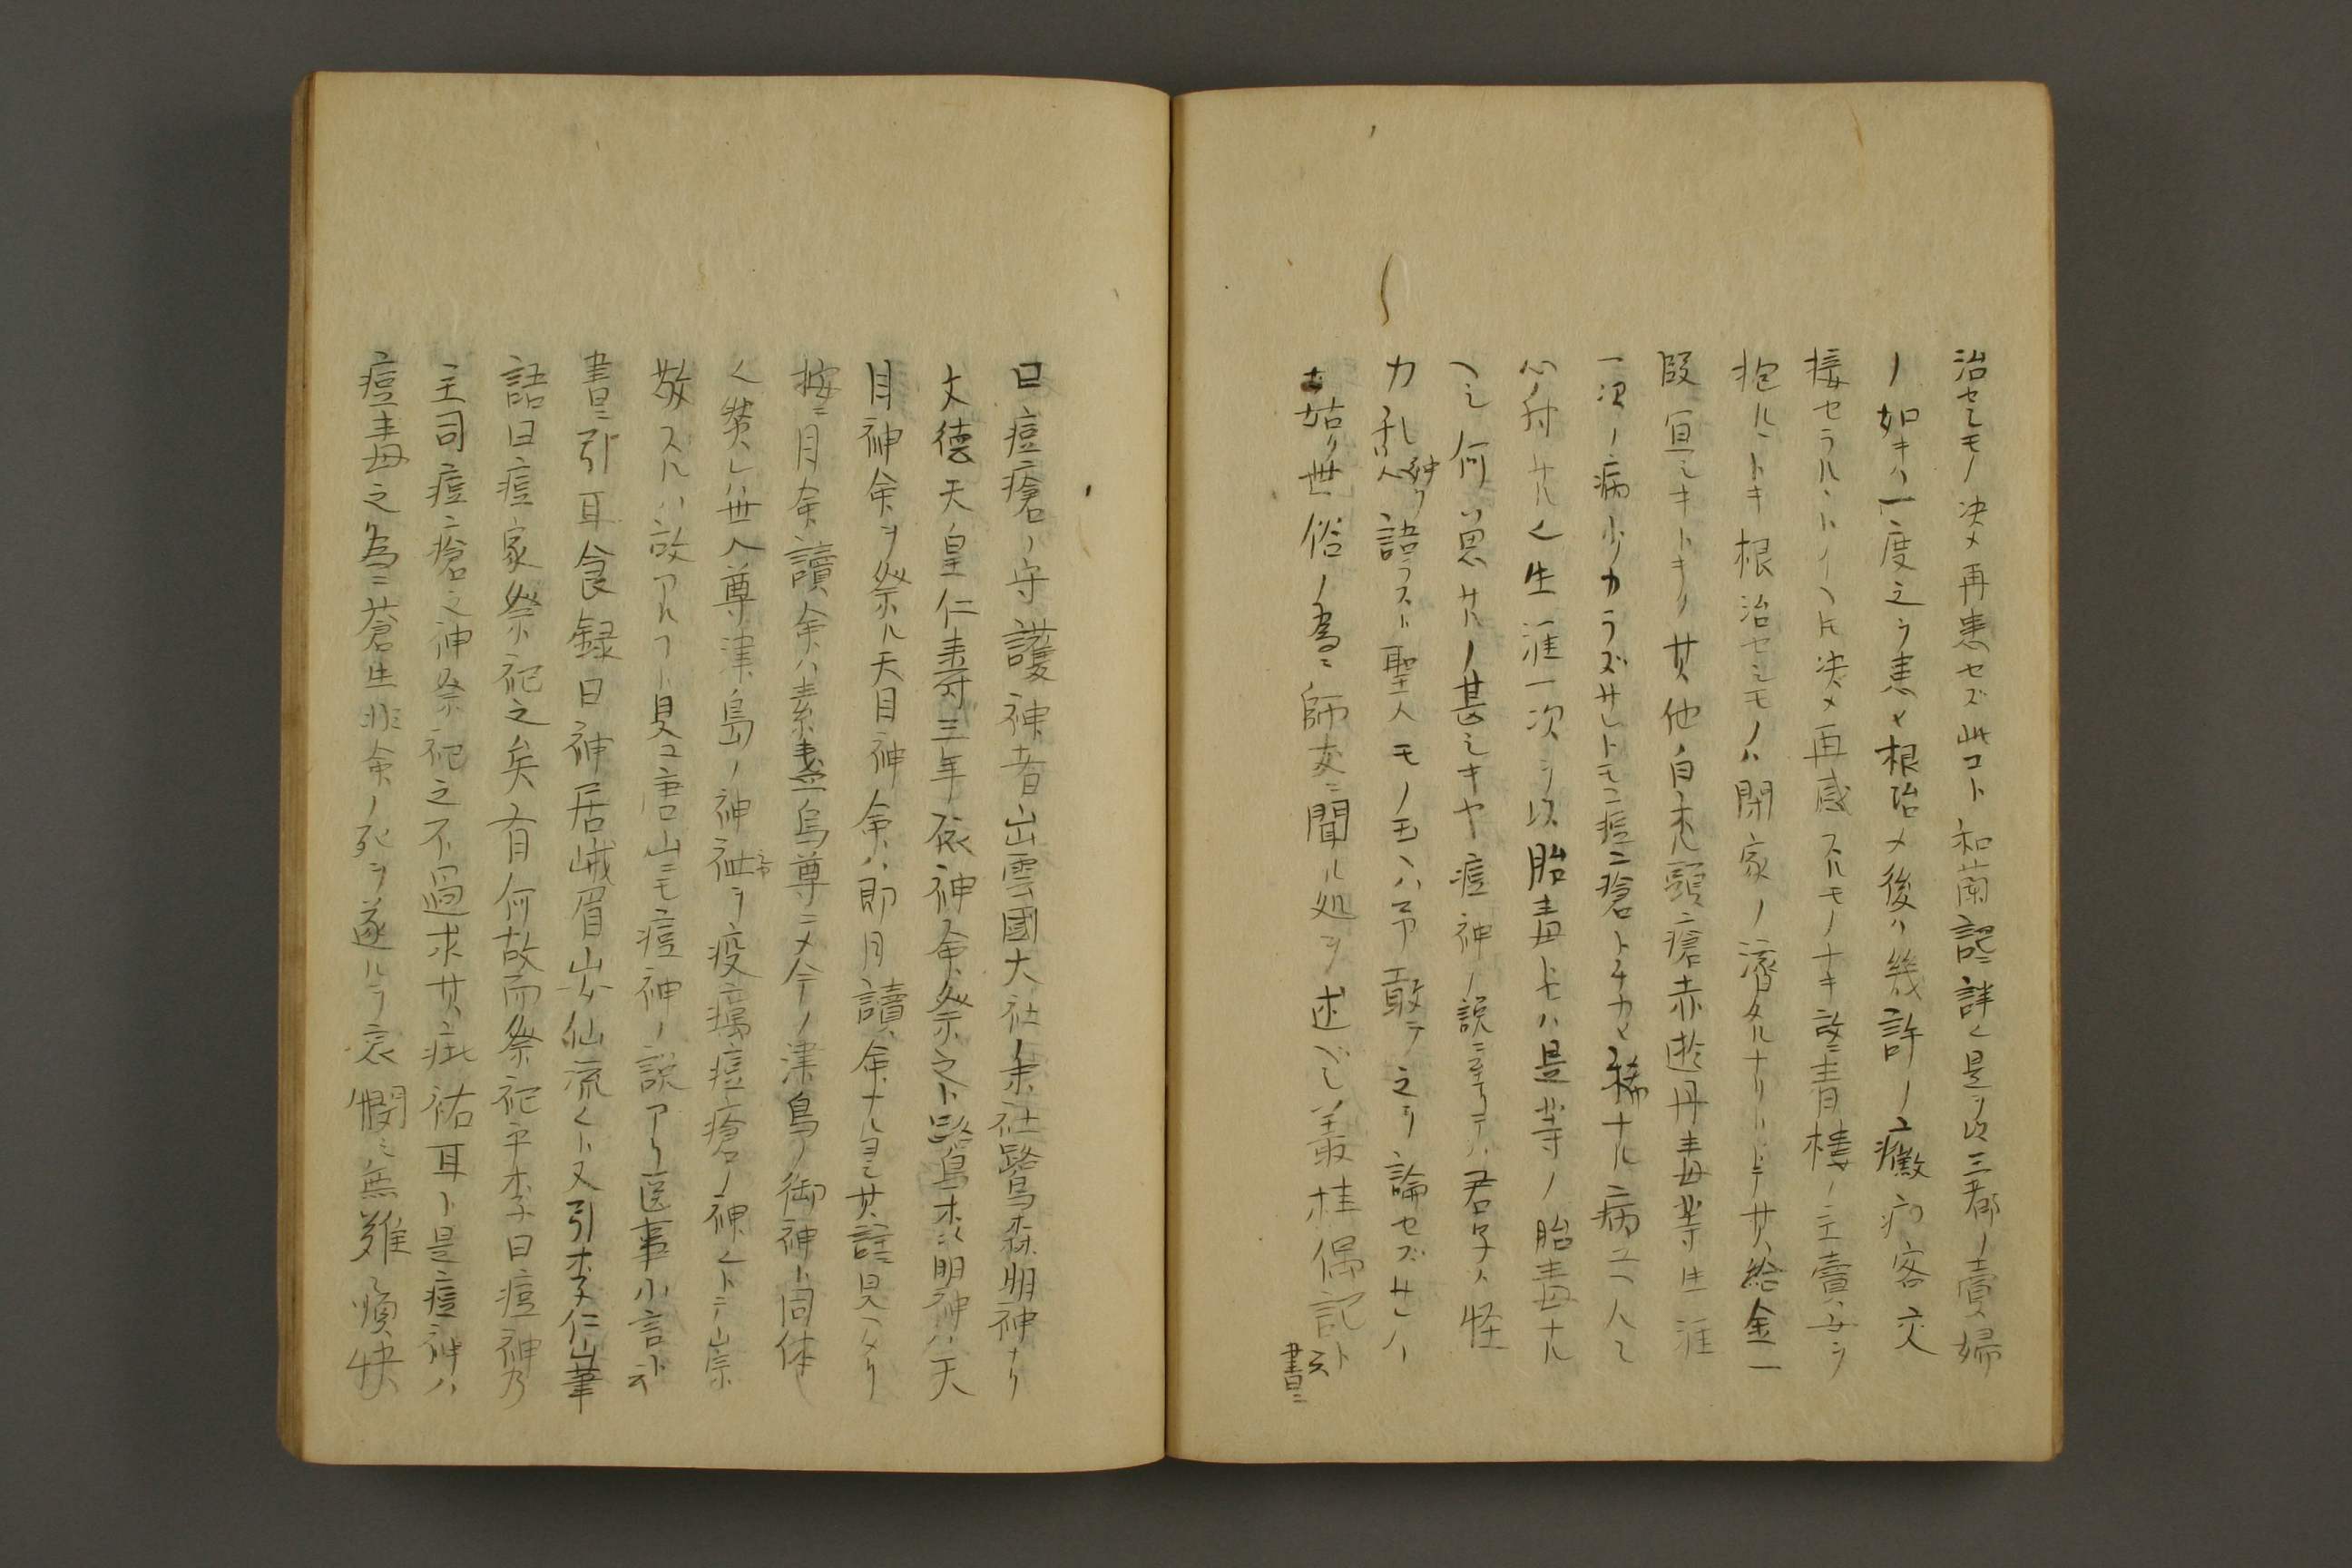 治セシモノ決メ再患セズ此コト和蘭説ニ詳也是ヲ以三都ノ賣婦
ノ如キハ一度之ヲ患ヘ根治〆後ハ幾許ノ黴病客ニ交
接セラルヽトイヘ𪜈決〆再感スルモノナキ故ニ青楼ノ主賣女ヲ
抱ルヽトキ根治セシモノハ閉家ノ濟タルナリトドテ其給金一
段宜シキトキク其他白禿頭瘡赤遊丹毒等生涯
一次ノ病少カラズサレトモ痘瘡トチカヘ稀ナル病ユヘ人々
心ノ付サル也生涯一次ヲ以胎毒トセハ是等ノ胎毒ナル
ヘシ何ソ思サルノ甚シキヤ痘神ノ説ニ至テハ君子ハ怪
力乱神ヲ語ラスト聖人モノ玉ヘハ予敢テ之ヲ論セズサレハ
姑ク世俗ノ為ニ師友ニ聞ル処ヲ述ベシ叢桂偶記ト云書ニ
曰痘瘡ノ守護神者出雲國大社ノ末社鷺森明神ナリ
文徳天皇仁壽三年依神命祭之ト鷺森明神ハ天
目神命ヲ祭ル天目神命ハ即月讀命ナルヨシ其註ニ見ヘタリ
按ニ月命讀命ハ素盞烏尊ニメ今ノ津島ノ御神ト同体
也然レハ世人尊津島ノ神社ヲ疫癘痘瘡ノ神也トテ崇
敬スルハ故アルコト見ユ唐山ニモ痘神ノ説アリ医事小言ト云
書ニ引耳食録曰神居峨眉山女仙流也ト又引李仁山筆
語曰痘家祭祀之矣有何故而祭祀乎李曰痘神乃
主司痘瘡之神祭祀之不過求其疵祐耳ト是痘神ハ
痘毒之為ニ蒼生非命ノ死ヲ遂ルヲ哀憫シ無難ニ順快